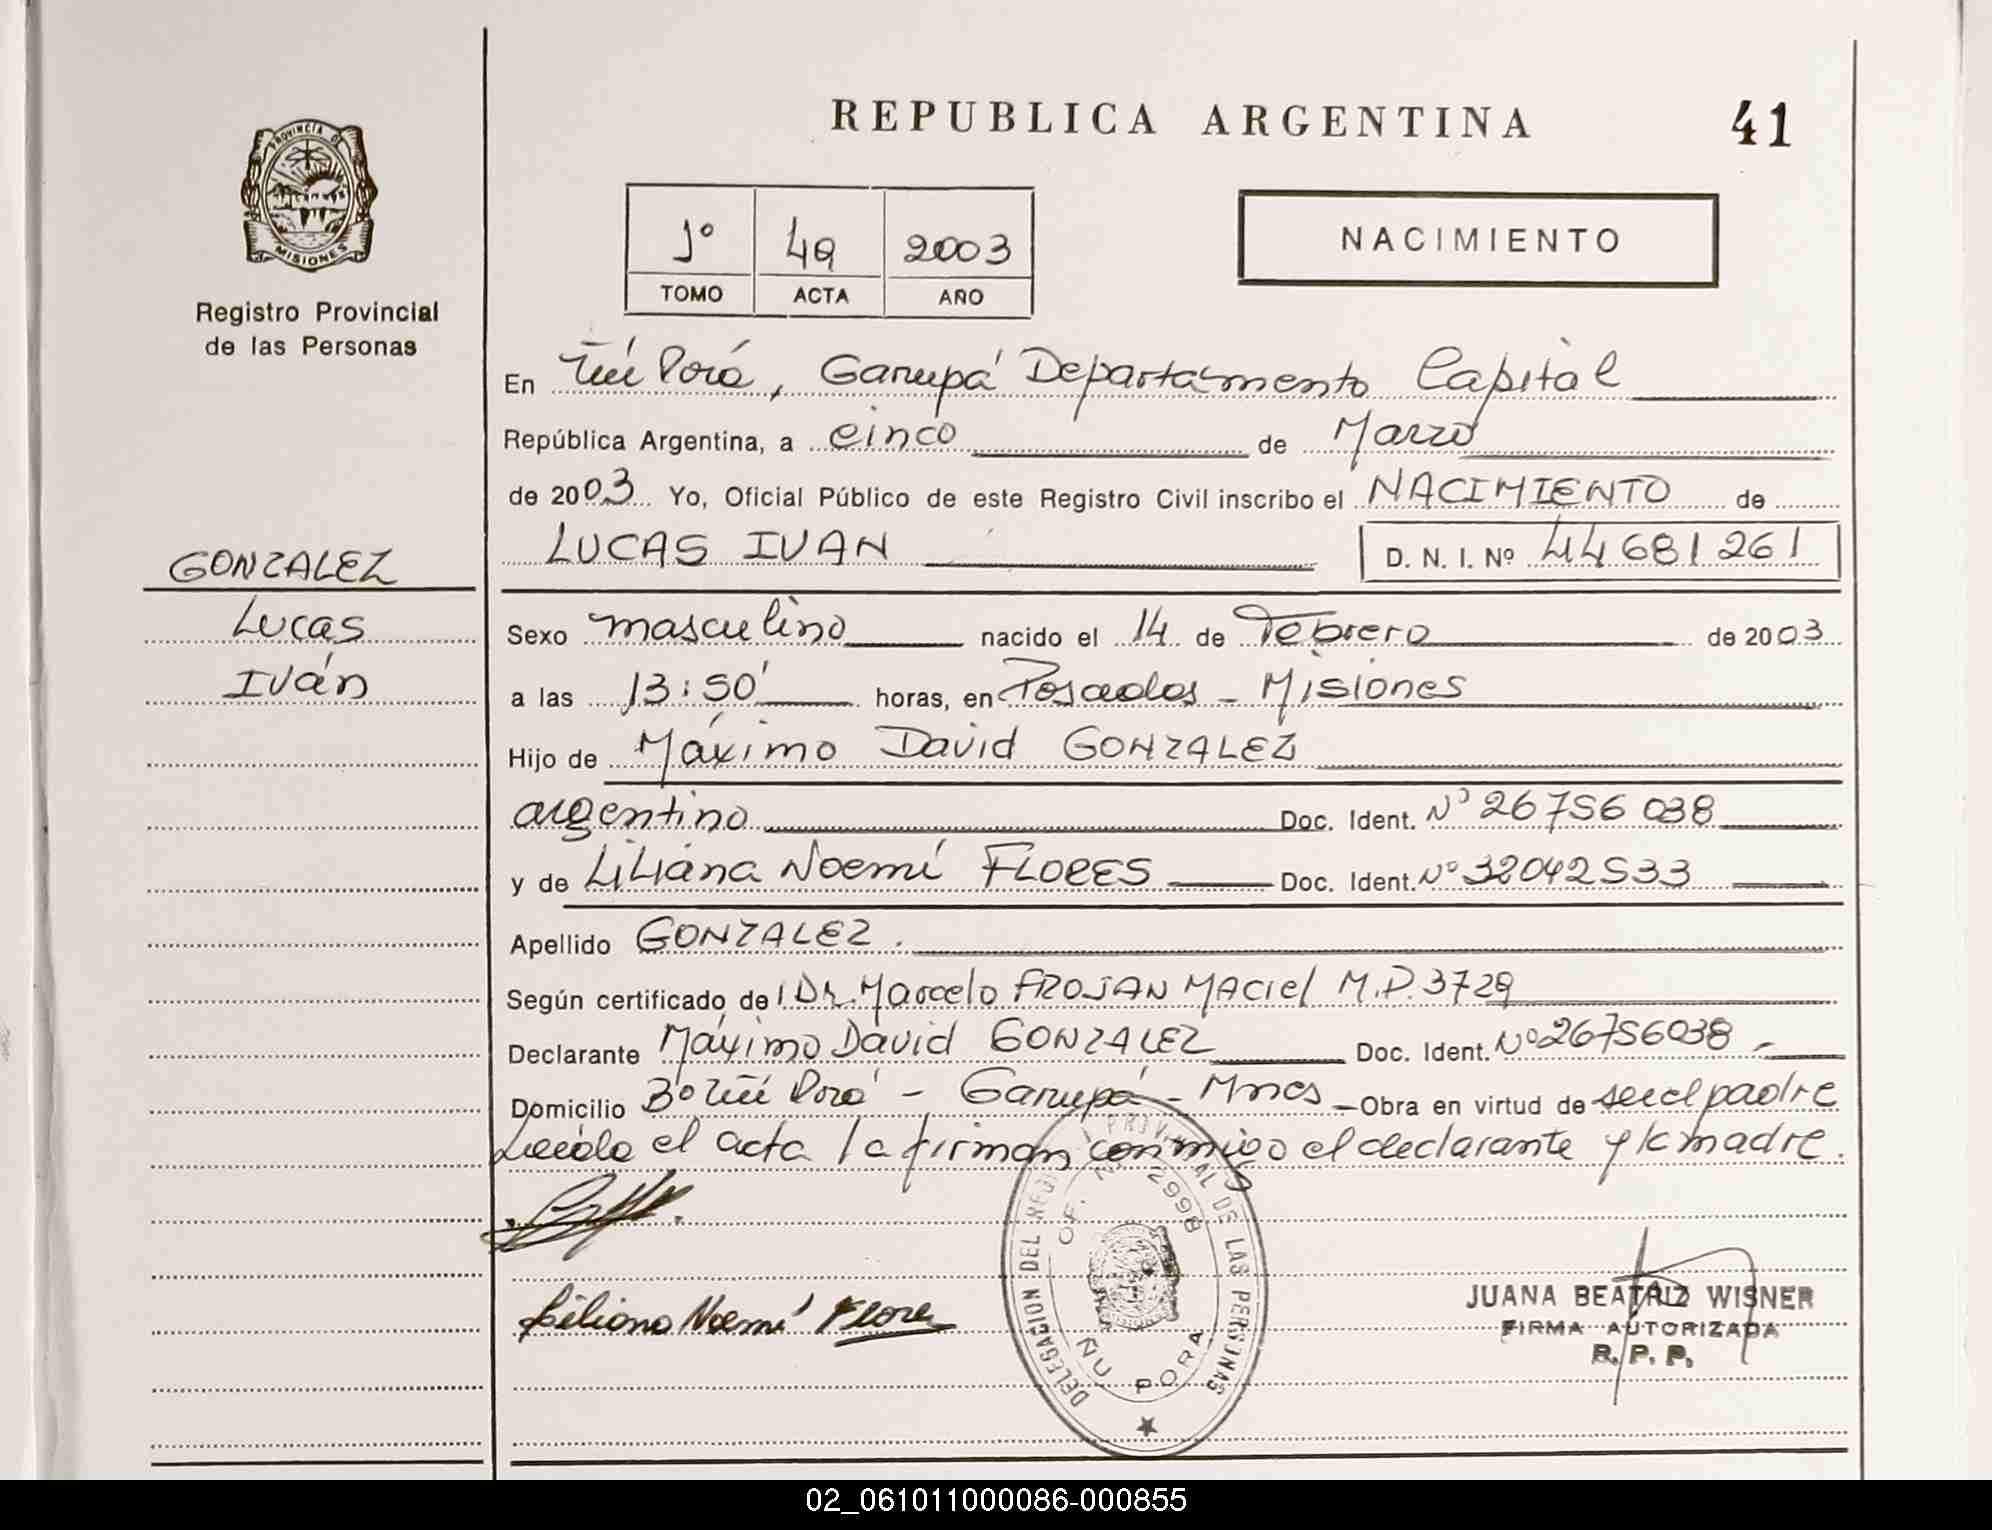 REPUBLICA ARGENTINA
41
PROVINCIA DE
MISIONES
Registro Provincial
de las Personas
1º 49 2003
TOMO ACTA AÑO
NACIMIENTO
En Ñú Porá, Garupá Departamento Capital
República Argentina, a cinco de Marzo
de 2003 Yo, Oficial Público de este Registro Civil inscribo el NACIMIENTO de
LUCAS IVAN D. N. I. Nº 44681261
GONZALEZ
Lucas
Iván
Sexo masculino nacido el 14 de Febrero de 2003
a las 13:50' horas, en Posadas - Misiones
Hijo de Máximo David GONZALEZ
argentino Doc. Ident. Nº 26756038
y de Liliana Noemí FLORES Doc. Ident. Nº 32042533
Apellido GONZALEZ.
Según certificado de Dr. Marcelo FROJAN MACIEL M.P. 3729
Declarante Máximo David GONZALEZ Doc. Ident. Nº 26756038
Domicilio Bº Ñú Porá - Garupá - Mnes Obra en virtud de ser el padre
Leída el acta la firman conmigo el declarante y la madre.
Liliana Noemí Flores
DELEGACION DEL REGISTRO PROVINCIAL DE LAS PERSONAS
OF. Nº 2998
ÑU PORA
JUANA BEATRIZ WISNER
FIRMA AUTORIZADA
R. P. P.
02_061011000086-000855